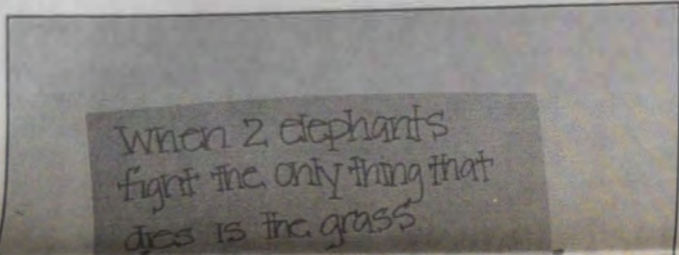 When 2 elephants
fight the only thing that
dies is the grass